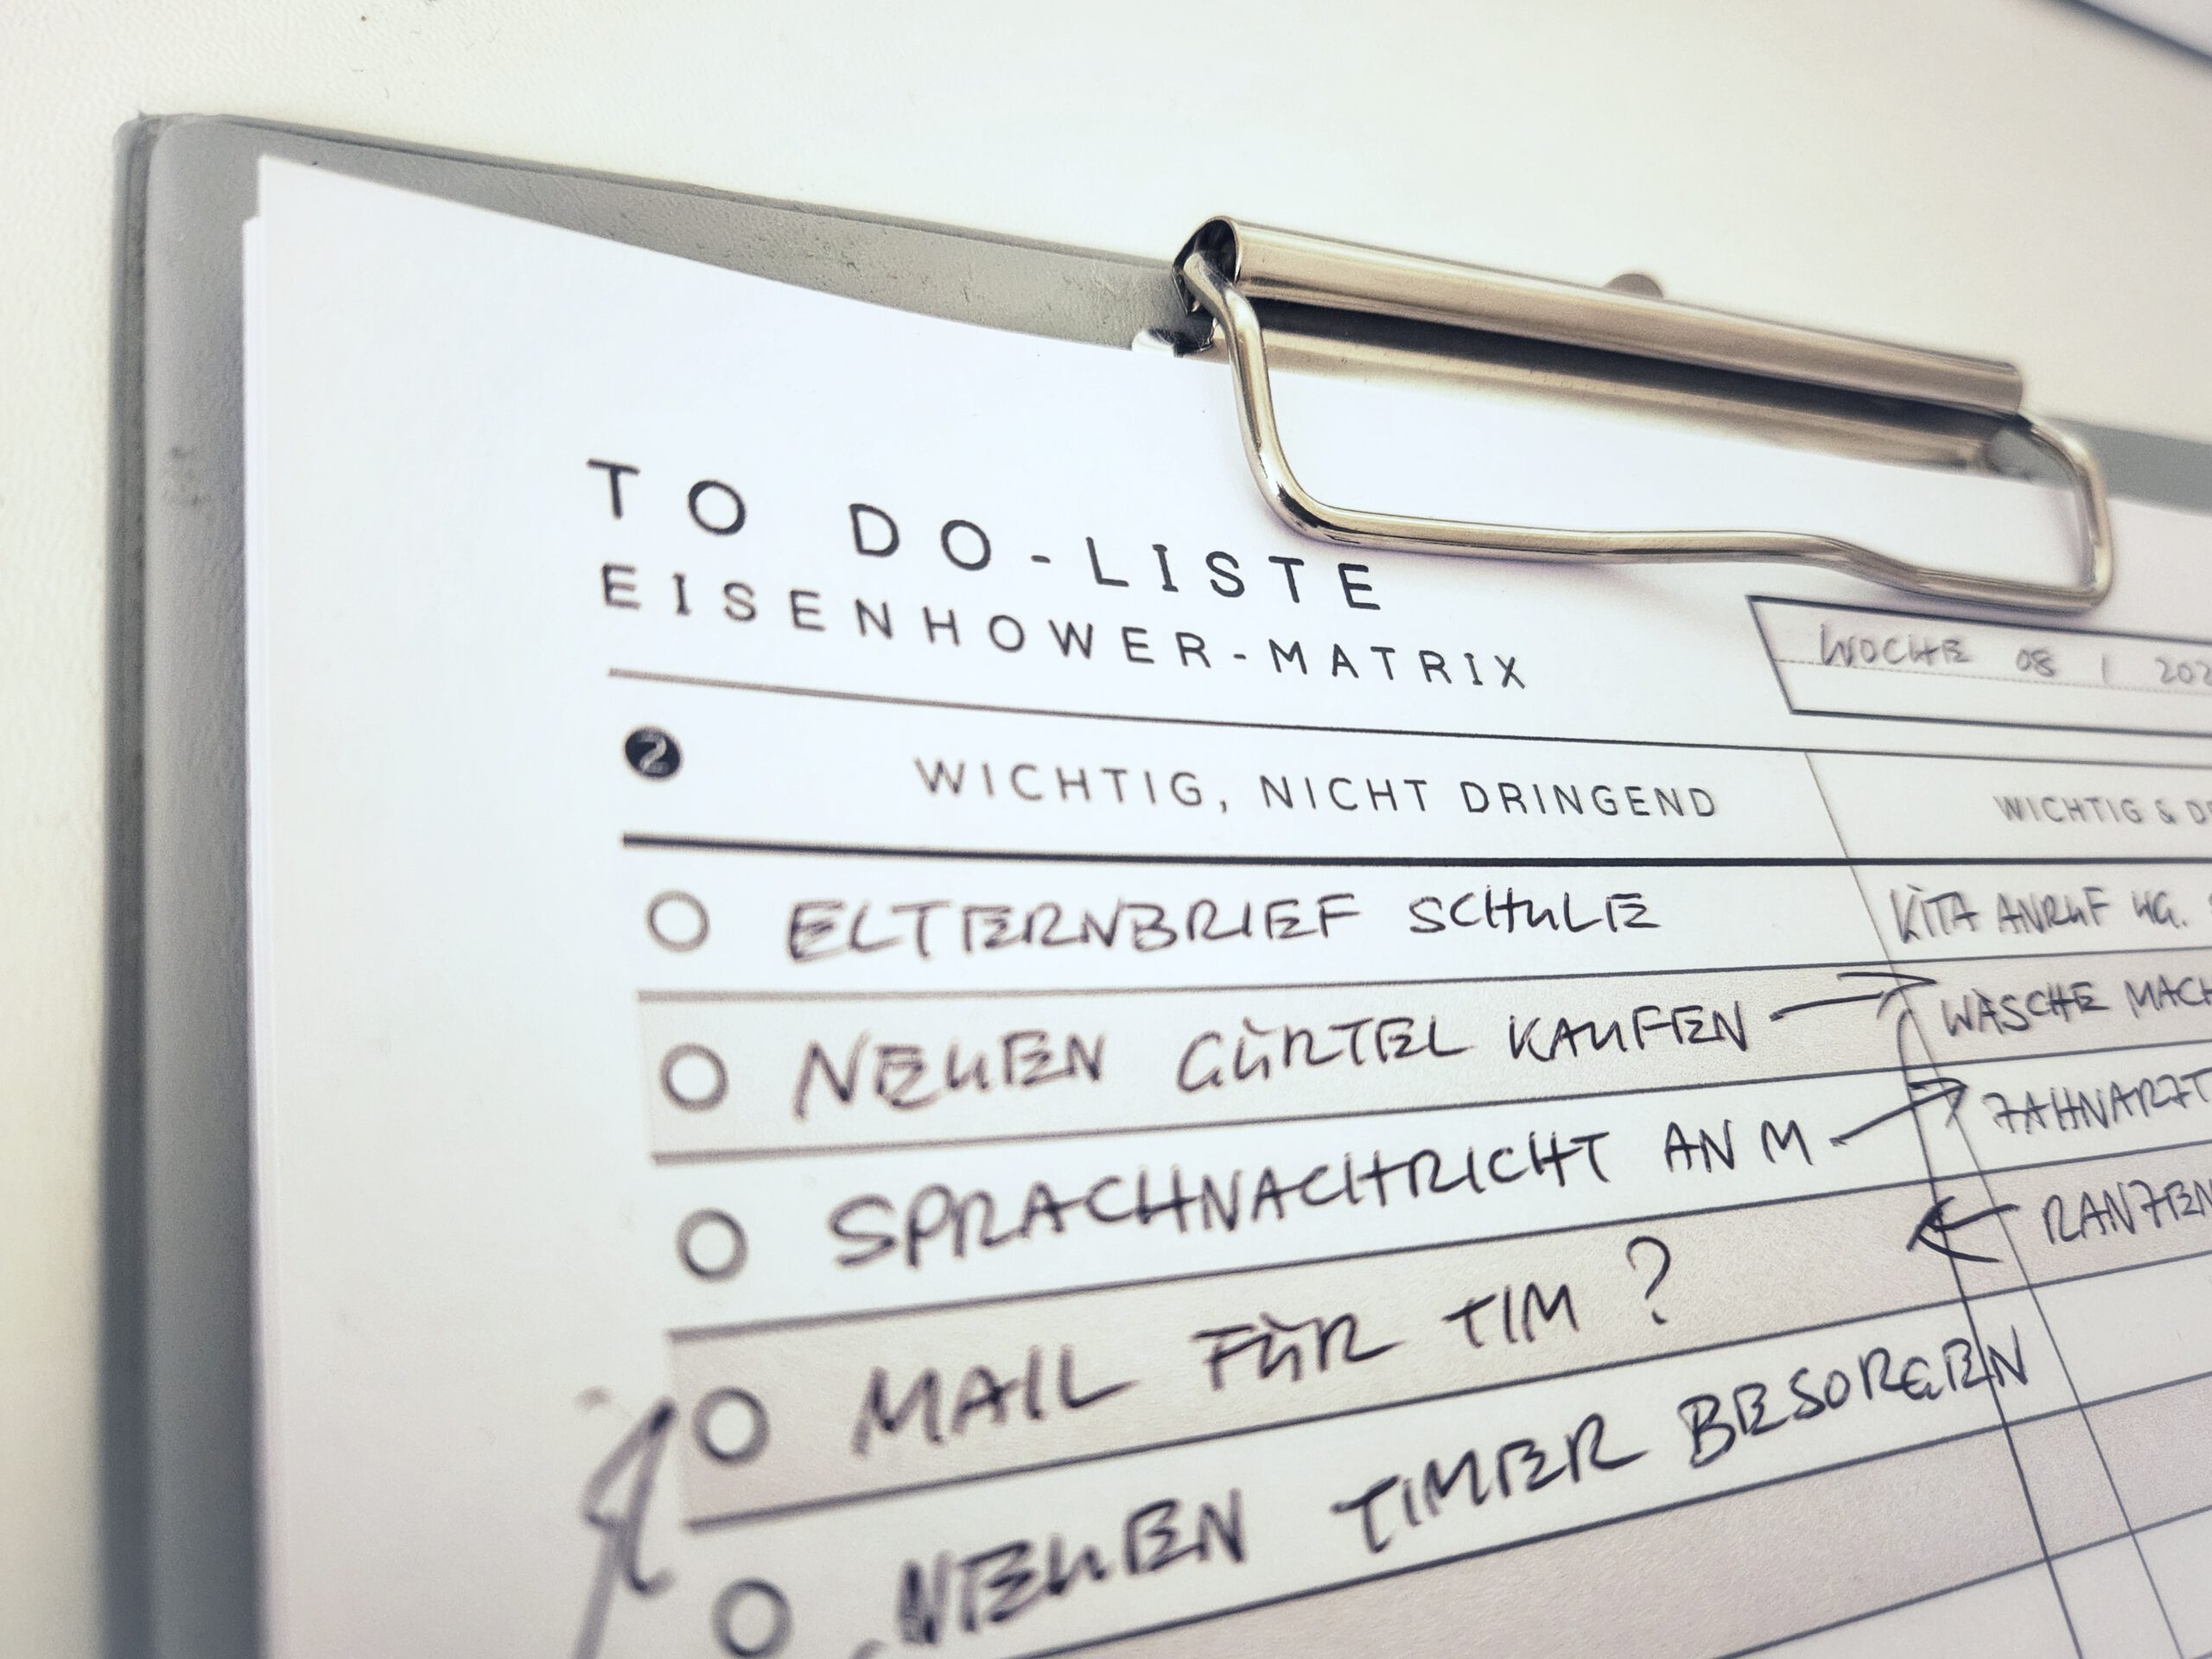 TO DO-LISTE
EISENHOWER-MATRIX
WOCHE 08 / 202
2 WICHTIG, NICHT DRINGEND
WICHTIG &
ELTERNBRIEF SCHULE
KITA ANRUF WG.
NEUEN GÜRTEL KAUFEN →
WÄSCHE MACH
SPRACHNACHRICHT AN M →
ZAHNARZT
MAIL FÜR TIM ?
← RANZEN
NEUEN TIMER BESORGEN